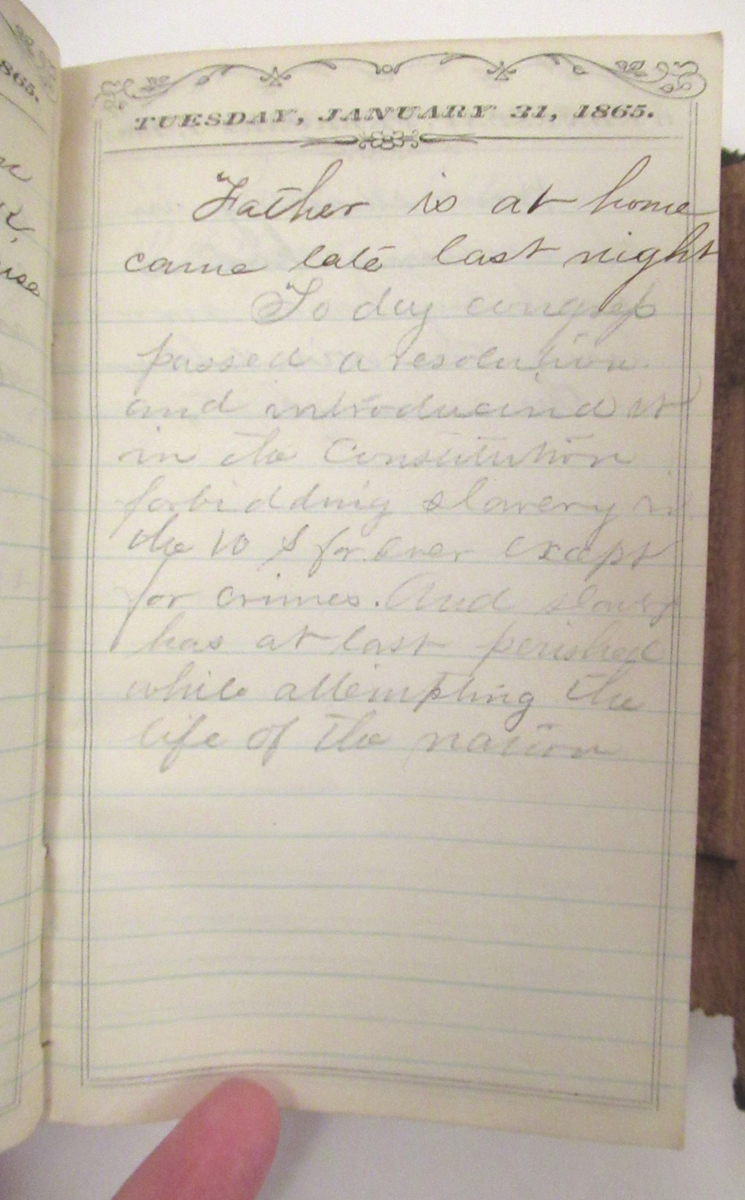 865.
TUESDAY, JANUARY 31, 1865.
Father is at home
came late last night
To day congress
passed a resolution
and introducind it
in the Constitution
forbidding slavery in
the U S for ever except
for crimes. And slavery
has at last perished
while attempting the
life of the nation